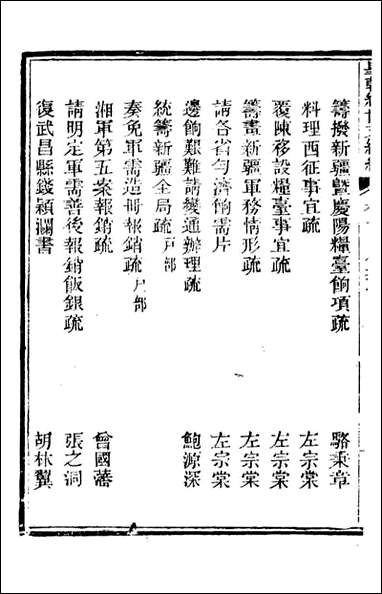 籌撥新疆曁慶陽糧臺餉項疏 駱秉章
料理西征事宜疏 左宗棠
覆陳移設糧臺事宜疏 左宗棠
籌畫新疆軍務情形疏 左宗棠
請各省勻濟餉需片 左宗棠
邊餉艱難請變通辦理疏 鮑源深
統籌新疆全局疏 戸部
奏免軍需造册報銷疏 戸部
湘軍第五案報銷疏 曾國藩
請明定軍需善後報銷飯銀疏 張之洞
復武昌縣錢穎瀾書 胡林翼